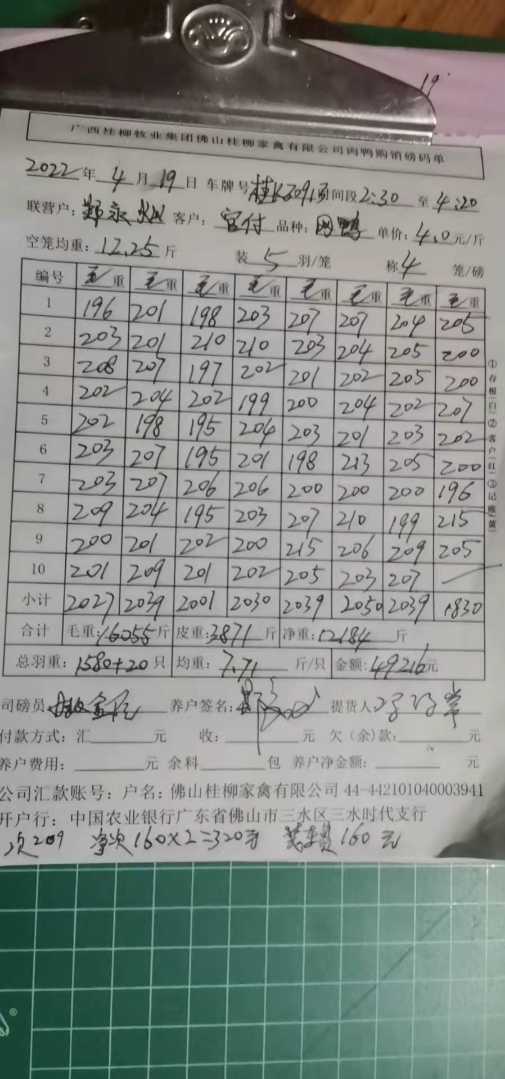 19
广西桂柳牧业集团佛山桂柳家禽有限公司肉鸭购销磅码单
2022年 4月 19日 车牌号 时间段 2:30 至 4:20
联营户: 郑永 客户: 官付 品种: 网鸭 单价: 4.0元/斤
空笼均重: 12.25 斤 装 5 羽/笼 称 4 笼/磅
编号 毛重 毛重 毛重 毛重 毛重 毛重 毛重 毛重
1 196 201 198 203 207 207 204 205
2 203 201 210 210 203 204 205 200
3 208 207 197 202 201 202 205 200
4 202 204 202 199 200 204 202 207
5 202 198 195 204 203 201 203 202
6 203 207 195 201 198 213 205 200
7 203 207 206 206 200 200 200 196
8 209 204 195 203 207 210 199 215
9 200 201 202 200 215 206 209 205
10 201 209 201 202 205 203 207
小计 2027 2039 2001 2030 2039 2050 2039 1830
合计 毛重: 16055斤 皮重: 3871斤 净重: 12184 斤
总羽重: 1580+20 只 均重: 7.71 斤/只 金额: 49216元
司磅员 养户签名: 提货人
付款方式: 汇 元 收: 元 欠(余)款: 元
养户费用: 元 余料 包 养户净金额: 元
公司汇款账号: 户名: 佛山桂柳家禽有限公司 44-442101040003941
开户行: 中国农业银行广东省佛山市三水区三水时代支行
次209 160×2=320元 装车费160元
①存根(白)②客户(红)③记账(黄)